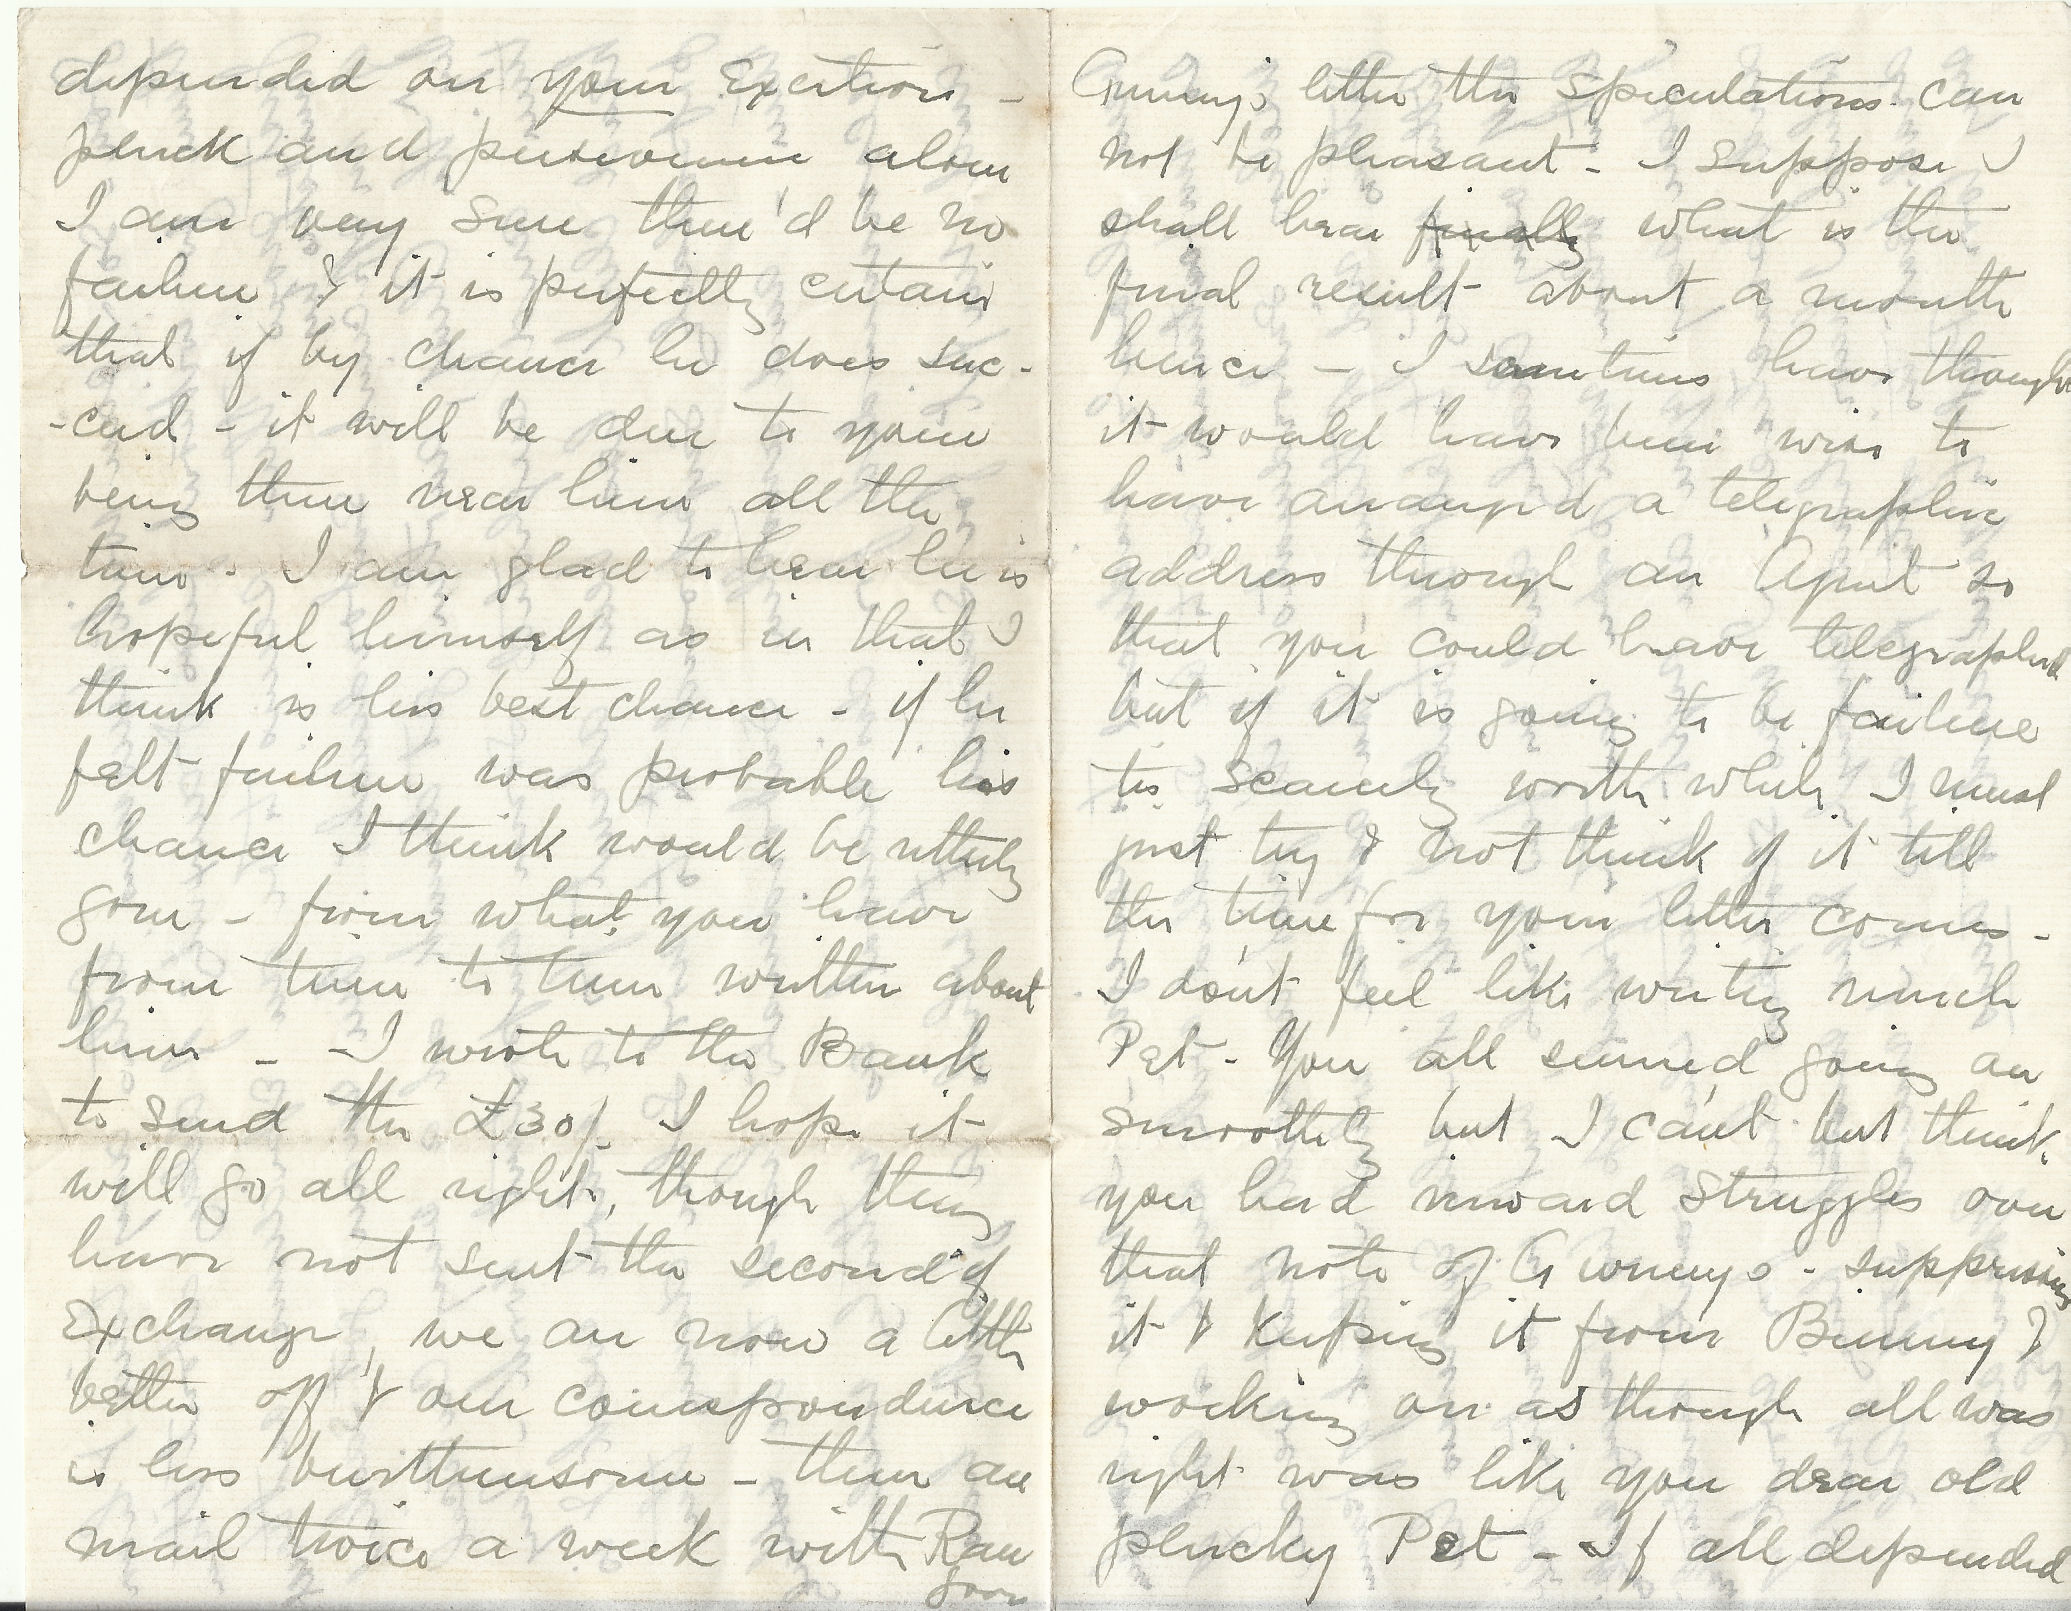 depended on your Exertions -
pluck and perseverance alone
I am very sure there'd be no
failure & it is perfectly certain
that if by chance he does suc-
-ceed - it will be due to your
being there near him all the
time - I am glad to hear he is
hopeful himself as in that I
think is his best chance - if he
felt failure was probable his
chance I think would be utterly
gone - from what you have
from time to time written about
him - I wrote to the Bank
to send the £30/. I hope it
will go all right, though they
have not sent the second of
Exchange, we are now a little
better off & our correspondence
is less burthensome - there are
mail twice a week with Ran
goon
letter the speculations can
not be pleasant - I suppose I
shall hear finally what is the
final result about a month
hence - I sometimes have thought
it would have been wise to
have arranged a telegraphic
address through an Agent so
that you could have telegraphed
but if it is going to be failure
tis scarcely worth while I must
just try & not think of it till
the time for your letter comes -
I don't feel like writing much
Pet - You all seemed going on
smoothly but I can't but think
you had inward struggles over
that note of - suppressing
it & keeping it from Bunny &
working on as though all was
right was like you dear old
plucky Pet - If all depended